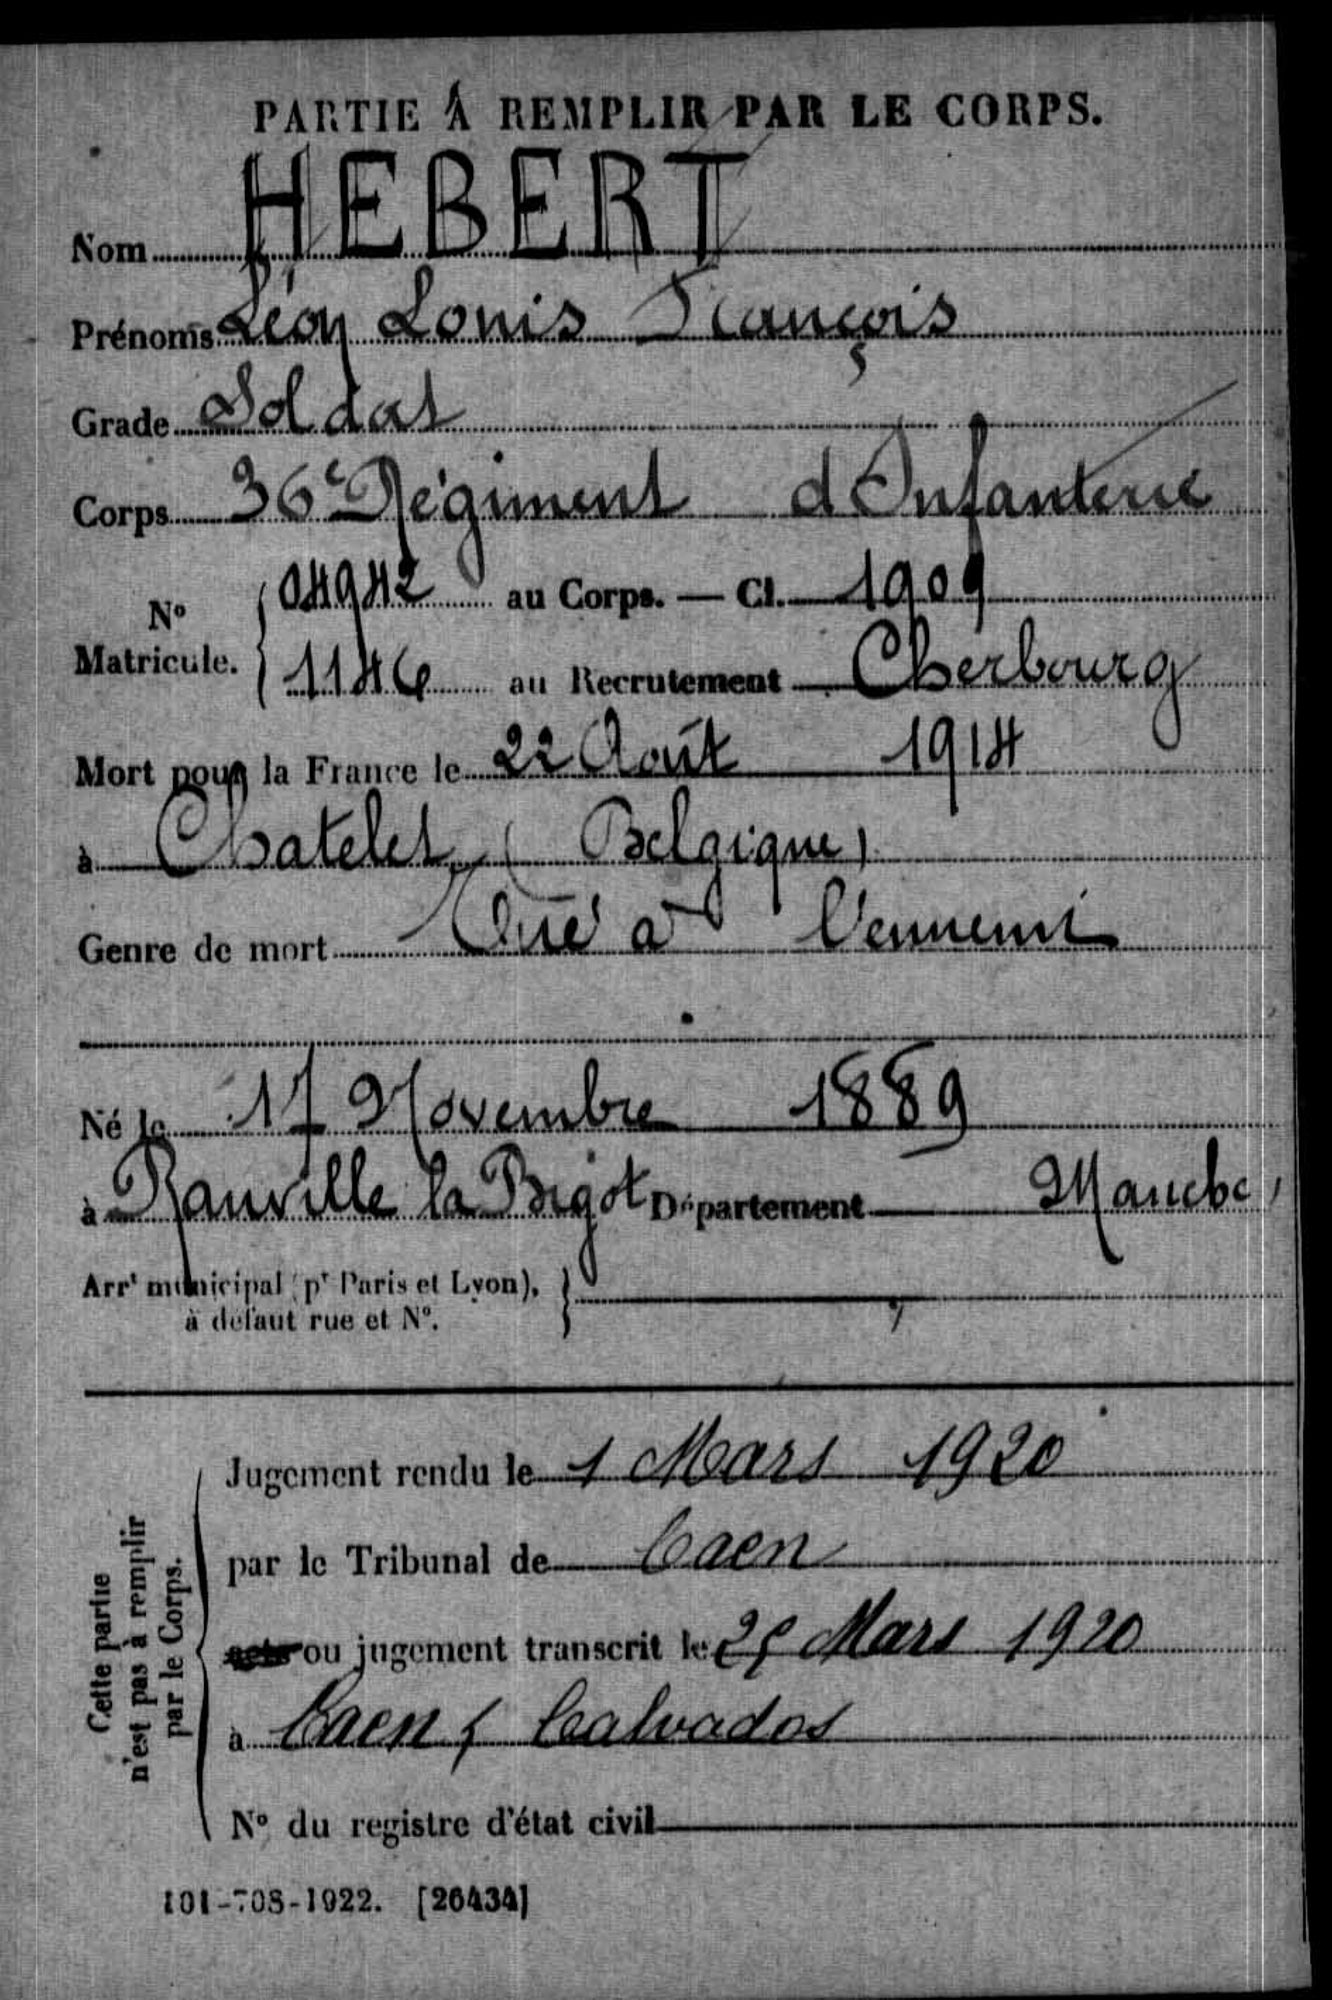 PARTIE À REMPLIR PAR LE CORPS.
Nom HEBERT
Prénoms Léon Louis François
Grade Soldat
Corps 36e Régiment d'Infanterie
N° Matricule. { 04942 au Corps. — Cl. 1909
1146 au Recrutement Cherbourg
Mort pour la France le 22 Août 1914
à Chatelet (Belgique)
Genre de mort Tué à l'ennemi
Né le 17 Novembre 1889
à Rauville la Bigot Département Manche
Arrt municipal (pr Paris et Lyon), }
à défaut rue et N°.
Cette partie
n'est pas à remplir
par le Corps.
Jugement rendu le 1 Mars 1920
par le Tribunal de Caen
acte ou jugement transcrit le 25 Mars 1920
à Caen ( Calvados
N° du registre d'état civil
101-708-1922. [26434]